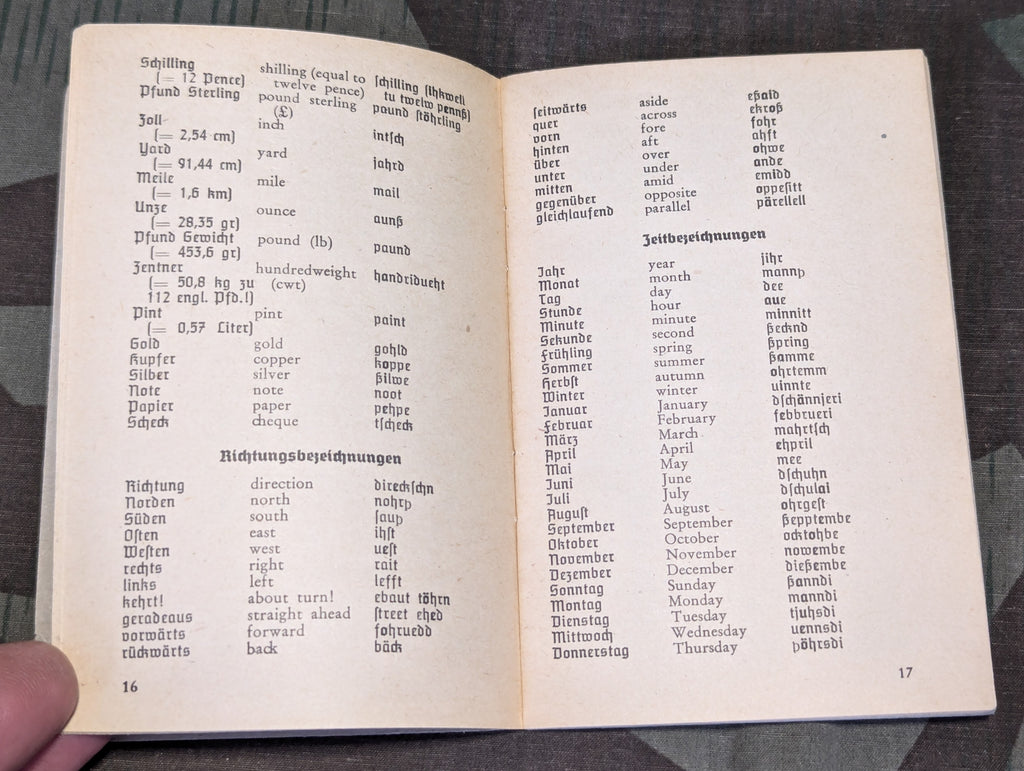 Schilling shilling (equal to ſchilling (ihkwell
(= 12 Pence) twelve pence) tu twelw pennß)
Pfund Sterling pound sterling paund ſtöhrling
(£)
Zoll inch intſch
(= 2,54 cm)
Yard yard jahrd
(= 91,44 cm)
Meile mile mail
(= 1,6 km)
Unze ounce aunß
(= 28,35 gr)
Pfund Gewicht pound (lb) paund
(= 453,6 gr)
Zentner hundredweight handridueht
(= 50,8 kg zu (cwt)
112 engl. Pfd.!)
Pint pint paint
(= 0,57 Liter)
Gold gold gohld
Kupfer copper koppe
Silber silver ßilwe
Note note noot
Papier paper pehpe
Scheck cheque tſcheck
Richtungsbezeichnungen
Richtung direction direckſchn
Norden north nohrþ
Süden south ſauþ
Oſten east ihſt
Weſten west ueſt
rechts right rait
links left lefft
kehrt! about turn! ebaut töhrn
geradeaus straight ahead ſtreet ehed
vorwärts forward fohruedd
rückwärts back bäck
16
ſeitwärts aside eßaid
quer across ekroß
vorn fore fohr
hinten aft ahft
über over ohwe
unter under ande
mitten amid emidd
gegenüber opposite oppeſitt
gleichlaufend parallel pärellell
Zeitbezeichnungen
Jahr year jihr
Monat month mannþ
Tag day dee
Stunde hour aue
Minute minute minnitt
Sekunde second ßecknd
Frühling spring ßpring
Sommer summer ßamme
Herbſt autumn ohrtemm
Winter winter uinnte
Januar January dſchännjeri
Februar February febbrueri
März March mahrtſch
April April ehpril
Mai May mee
Juni June dſchuhn
Juli July dſchulai
Auguſt August ohrgeſt
September September ßepptembe
Oktober October ocktohbe
November November nowembe
Dezember December dießembe
Sonntag Sunday ßanndi
Montag Monday manndi
Dienstag Tuesday tjuhsdi
Mittwoch Wednesday uennsdi
Donnerstag Thursday þöhrsdi
17